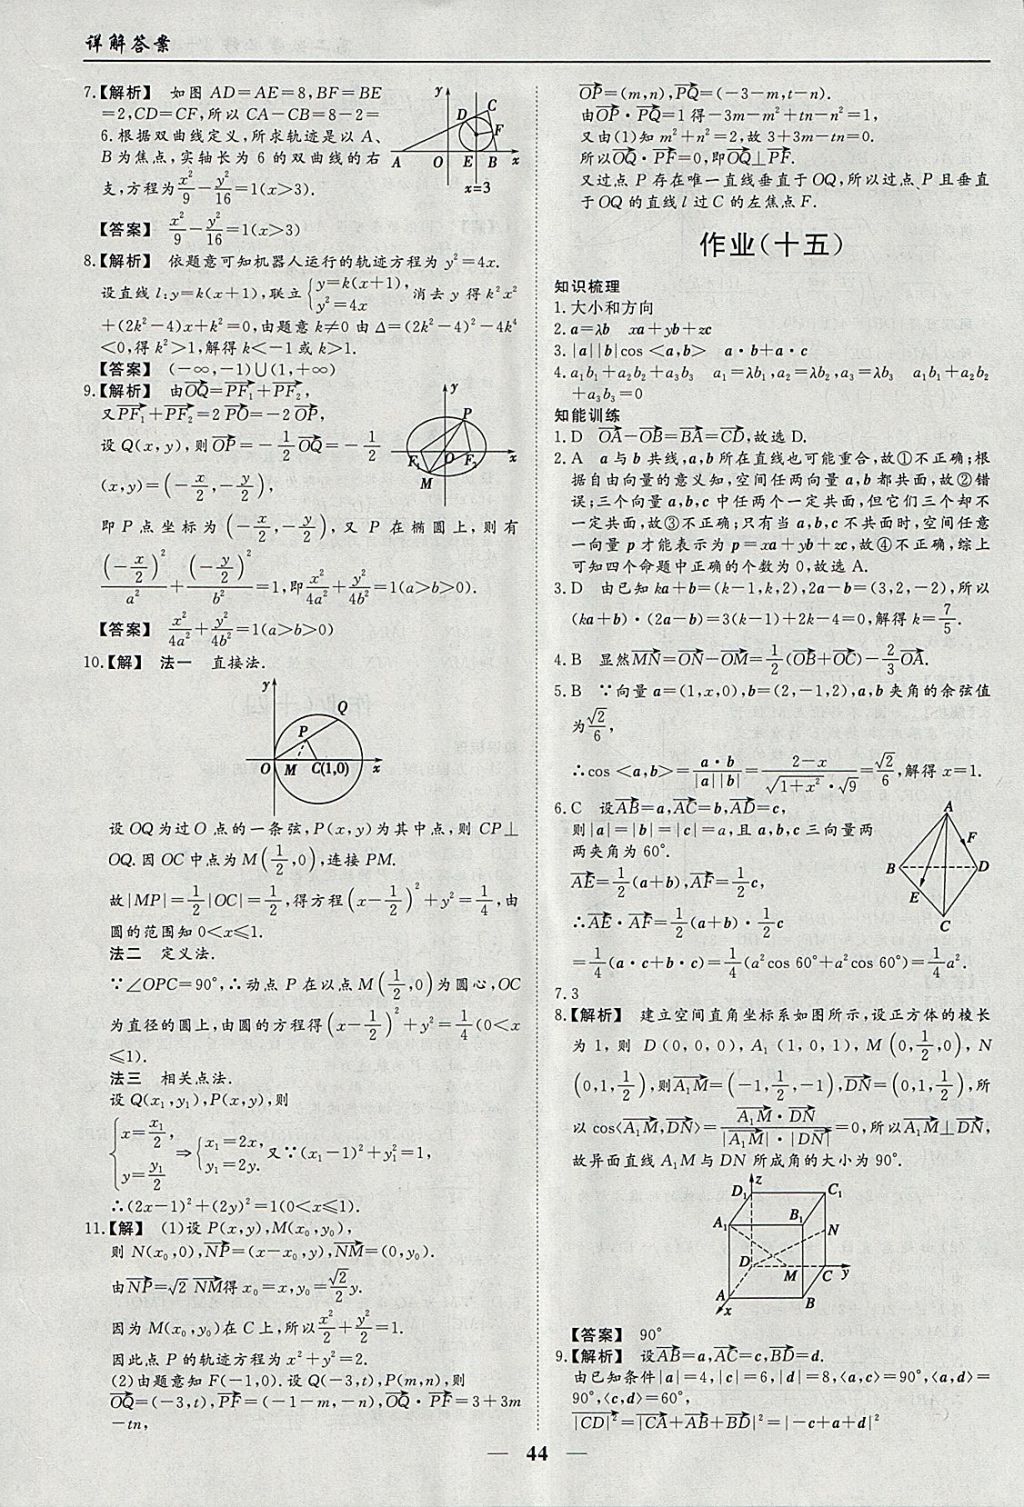 详解答案
7.【解析】 如图 AD=AE=8,BF=BE
=2,CD=CF,所以 CA-CB=8-2=
6.根据双曲线定义,所求轨迹是以 A、
B为焦点,实轴长为 6 的双曲线的右
支,方程为x²/9-y²/16=1(x>3).
y
D
C
F
A
O
E
B
x
x=3
【答案】 x²/9-y²/16=1(x>3)
8.【解析】 依题意可知机器人运行的轨迹方程为 y²=4x.
设直线 l:y=k(x+1),联立{y=k(x+1), y²=4x 消去 y 得 k²x²
+(2k²-4)x+k²=0,由题意 k≠0 由 Δ=(2k²-4)²-4k⁴
<0,得 k²>1,解得 k<-1或 k>1.
【答案】 (-∞,-1)∪(1,+∞)
9.【解析】 由OQ→=PF₁→+PF₂→,
又PF₁→+PF₂→=2PO→=-2OP→,
设 Q(x,y),则OP→=-1/2 OQ→=-1/2
(x,y)=(-x/2,-y/2),
y
P
F₁
O
F₂
x
M
即 P 点坐标为(-x/2,-y/2),又 P 在椭圆上,则有
(-x/2)²/a²+(-y/2)²/b²=1,即x²/4a²+y²/4b²=1(a>b>0).
【答案】 x²/4a²+y²/4b²=1(a>b>0)
10.【解】 法一 直接法.
y
Q
P
O
M
C(1,0)
x
设 OQ为过O 点的一条弦,P(x,y)为其中点,则 CP⊥
OQ.因 OC中点为 M(1/2,0),连接 PM.
故|MP|=1/2|OC|=1/2,得方程(x-1/2)²+y²=1/4,由
圆的范围知 0<x≤1.
法二 定义法.
∵∠OPC=90°,∴动点 P 在以点 M(1/2,0)为圆心,OC
为直径的圆上,由圆的方程得(x-1/2)²+y²=1/4(0<x
≤1).
法三 相关点法.
设 Q(x₁,y₁),P(x,y),则
{x=x₁/2, y=y₁/2 ⇒{x₁=2x, y₁=2y. 又∵(x₁-1)²+y₁²=1,
∴(2x-1)²+(2y)²=1(0<x≤1).
11.【解】 (1)设 P(x,y),M(x₀,y₀),
则 N(x₀,0),NP→=(x-x₀,y),NM→=(0,y₀).
由NP→=√2 NM→得 x₀=x,y₀=√2/2 y.
因为 M(x₀,y₀)在 C上,所以x²/2+y²/2=1.
因此点 P 的轨迹方程为 x²+y²=2.
(2)由题意知 F(-1,0).设 Q(-3,t),P(m,n),则
OQ→=(-3,t),PF→=(-1-m,-n),OQ→·PF→=3+3m
-tn,
OP→=(m,n),PQ→=(-3-m,t-n).
由OP→·PQ→=1得-3m-m²+tn-n²=1,
又由(1)知 m²+n²=2,故 3+3m-tn=0.
所以OQ→·PF→=0,即OQ→⊥PF→.
又过点 P 存在唯一直线垂直于 OQ,所以过点 P 且垂直
于 OQ 的直线 l 过 C 的左焦点 F.
作业(十五)
知识梳理
1.大小和方向
2.a=λb xa+yb+zc
3.|a||b|cos<a,b> a·b+a·c
4.a₁b₁+a₂b₂+a₃b₃ a₁=λb₁,a₂=λb₂,a₃=λb₃ a₁b₁+a₂b₂
+a₃b₃=0
知能训练
1.D OA→-OB→=BA→=CD→,故选 D.
2.A a与 b共线,a,b所在直线也可能重合,故①不正确;根
据自由向量的意义知,空间任两向量 a,b 都共面,故②错
误;三个向量 a,b,c 中任两个一定共面,但它们三个却不
一定共面,故③不正确;只有当 a,b,c 不共面时,空间任意
一向量 p 才能表示为 p=xa+yb+zc,故④不正确,综上
可知四个命题中正确的个数为 0,故选 A.
3.D 由已知 ka+b=(k-1,k,2),2a-b=(3,2,-2),所以
(ka+b)·(2a-b)=3(k-1)+2k-4=0,解得 k=7/5.
4.B 显然MN→=ON→-OM→=1/2(OB→+OC→)-2/3 OA→.
5.B ∵向量 a=(1,x,0),b=(2,-1,2),a,b 夹角的余弦值
为√2/6,
∴cos<a,b>=a·b/|a||b|=2-x/√1+x²·√9=√2/6,解得 x=1.
6.C 设AB→=a,AC→=b,AD→=c,
则|a|=|b|=|c|=a,且 a,b,c 三向量两
两夹角为 60°.
AE→=1/2(a+b),AF→=1/2c,
∴AE→·AF→=1/2(a+b)·1/2c
=1/4(a·c+b·c)=1/4(a²cos 60°+a²cos 60°)=1/4a².
A
F
B
D
E
C
7.3
8.【解析】 建立空间直角坐标系如图所示,设正方体的棱长
为 1,则 D(0,0,0),A₁(1,0,1),M(0,1/2,0),N
(0,1,1/2),则A₁M→=(-1,1/2,-1),DN→=(0,1,1/2),所
以 cos<A₁M→,DN→>=A₁M→·DN→/|A₁M→|·|DN→|=0,所以A₁M→⊥DN→,
故异面直线 A₁M与 DN 所成角的大小为 90°.
z
D₁
C₁
A₁
B₁
N
D
M
C
y
A
B
x
【答案】 90°
9.【解析】 设AB→=a,AC→=c,BD→=d.
由已知条件|a|=4,|c|=6,|d|=8,<a,c>=90°,<a,d>=
90°,<c,d>=60°,
|CD→|²=|CA→+AB→+BD→|²=|-c+a+d|²
— 44 —